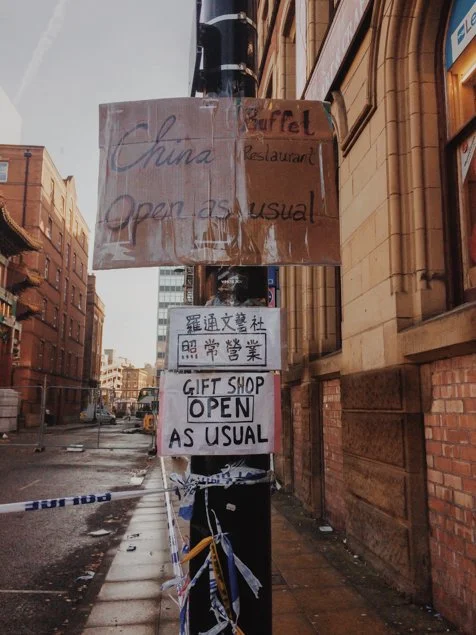 Buffet
China Restaurant
Open as usual
羅通文藝社
照常營業
GIFT SHOP
OPEN
AS USUAL